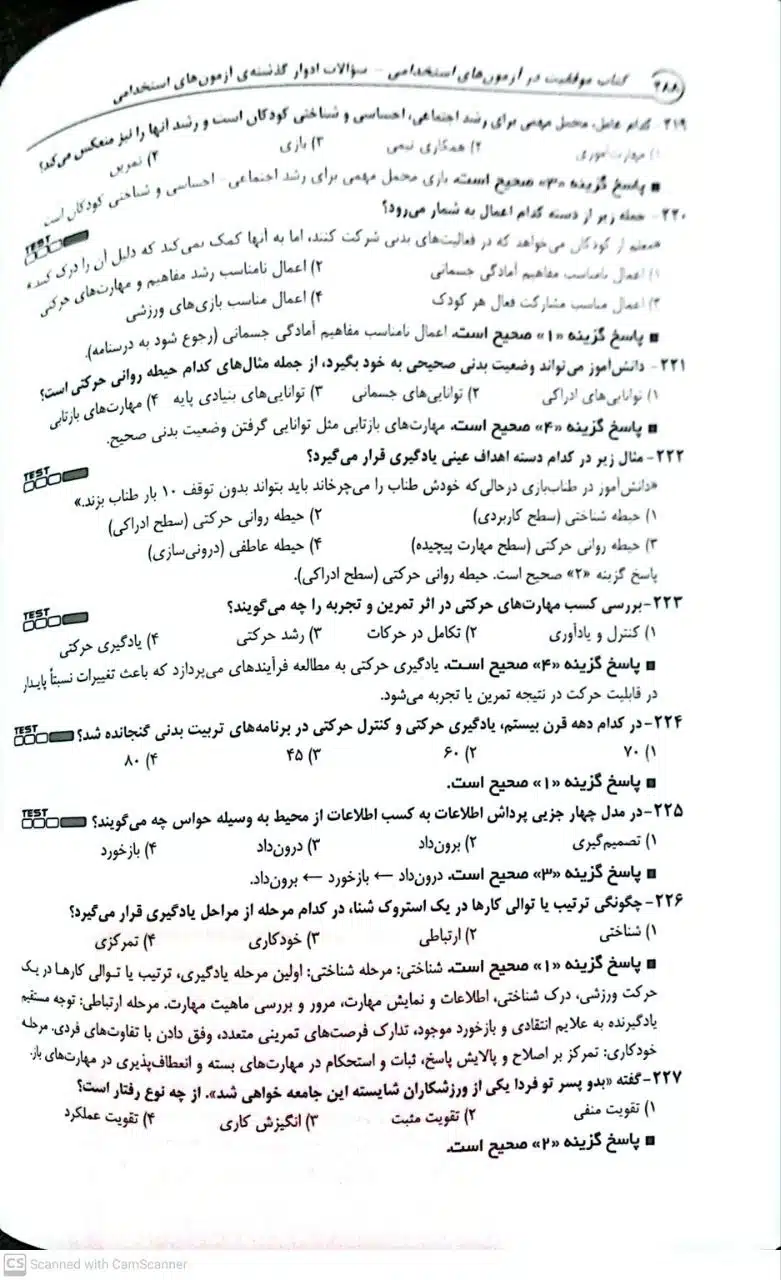 ۲۸۸ کتاب موفقیت در آزمون‌های استخدامی - سؤالات ادوار گذشته‌ی آزمون‌های استخدامی
۲۱۹- کدام عامل، محمل مهمی برای رشد اجتماعی، احساسی و شناختی کودکان است و رشد آنها را نیز منعکس می‌کند؟
۱) مهارت‌آموزی ۲) همکاری تیمی ۳) بازی ۴) تمرین
■ پاسخ گزینه «۳» صحیح است. بازی محمل مهمی برای رشد اجتماعی- احساسی و شناختی کودکان است
۲۲۰- جمله زیر از دسته کدام اعمال به شمار می‌رود؟
TEST
«معلم از کودکان می‌خواهد که در فعالیت‌های بدنی شرکت کنند، اما به آنها کمک نمی‌کند که دلیل آن را درک کنند»
۱) اعمال نامناسب مفاهیم آمادگی جسمانی ۲) اعمال نامناسب رشد مفاهیم و مهارت‌های حرکتی
۳) اعمال مناسب مشارکت فعال هر کودک ۴) اعمال مناسب بازی‌های ورزشی
■ پاسخ گزینه «۱» صحیح است. اعمال نامناسب مفاهیم آمادگی جسمانی (رجوع شود به درسنامه).
۲۲۱- دانش‌آموز می‌تواند وضعیت بدنی صحیحی به خود بگیرد، از جمله مثال‌های کدام حیطه روانی حرکتی است؟
۱) توانایی‌های ادراکی ۲) توانایی‌های جسمانی ۳) توانایی‌های بنیادی پایه ۴) مهارت‌های بازتابی
■ پاسخ گزینه «۴» صحیح است. مهارت‌های بازتابی مثل توانایی گرفتن وضعیت بدنی صحیح.
۲۲۲- مثال زیر در کدام دسته اهداف عینی یادگیری قرار می‌گیرد؟
TEST
«دانش‌آموز در طناب‌بازی درحالی‌که خودش طناب را می‌چرخاند باید بتواند بدون توقف ۱۰ بار طناب بزند.»
۱) حیطه شناختی (سطح کاربردی) ۲) حیطه روانی حرکتی (سطح ادراکی)
۳) حیطه روانی حرکتی (سطح مهارت پیچیده) ۴) حیطه عاطفی (درونی‌سازی)
پاسخ گزینه «۲» صحیح است. حیطه روانی حرکتی (سطح ادراکی).
۲۲۳- بررسی کسب مهارت‌های حرکتی در اثر تمرین و تجربه را چه می‌گویند؟
TEST
۱) کنترل و یادآوری ۲) تکامل در حرکات ۳) رشد حرکتی ۴) یادگیری حرکتی
■ پاسخ گزینه «۴» صحیح است. یادگیری حرکتی به مطالعه فرآیندهای می‌پردازد که باعث تغییرات نسبتاً پایدار
در قابلیت حرکت در نتیجه تمرین یا تجربه می‌شود.
۲۲۴- در کدام دهه قرن بیستم، یادگیری حرکتی و کنترل حرکتی در برنامه‌های تربیت بدنی گنجانده شد؟ TEST
۱) ۷۰ ۲) ۶۰ ۳) ۴۵ ۴) ۸۰
■ پاسخ گزینه «۱» صحیح است.
۲۲۵- در مدل چهار جزیی پرداش اطلاعات به کسب اطلاعات از محیط به وسیله حواس چه می‌گویند؟ TEST
۱) تصمیم‌گیری ۲) برون‌داد ۳) درون‌داد ۴) بازخورد
■ پاسخ گزینه «۳» صحیح است. درون‌داد ← بازخورد ← برون‌داد.
۲۲۶- چگونگی ترتیب یا توالی کارها در یک استروک شنا، در کدام مرحله از مراحل یادگیری قرار می‌گیرد؟
۱) شناختی ۲) ارتباطی ۳) خودکاری ۴) تمرکزی
■ پاسخ گزینه «۱» صحیح است. شناختی: مرحله شناختی: اولین مرحله یادگیری، ترتیب یا توالی کارها در یک
حرکت ورزشی، درک شناختی، اطلاعات و نمایش مهارت، مرور و بررسی ماهیت مهارت. مرحله ارتباطی: توجه مستقیم
یادگیرنده به علایم انتقادی و بازخورد موجود، تدارک فرصت‌های تمرینی متعدد، وفق دادن با تفاوت‌های فردی. مرحله
خودکاری: تمرکز بر اصلاح و پالایش پاسخ، ثبات و استحکام در مهارت‌های بسته و انعطاف‌پذیری در مهارت‌های باز.
۲۲۷- گفته «بدو پسر تو فردا یکی از ورزشکاران شایسته این جامعه خواهی شد». از چه نوع رفتار است؟
۱) تقویت منفی ۲) تقویت مثبت ۳) انگیزش کاری ۴) تقویت عملکرد
■ پاسخ گزینه «۲» صحیح است.
CS Scanned with CamScanner